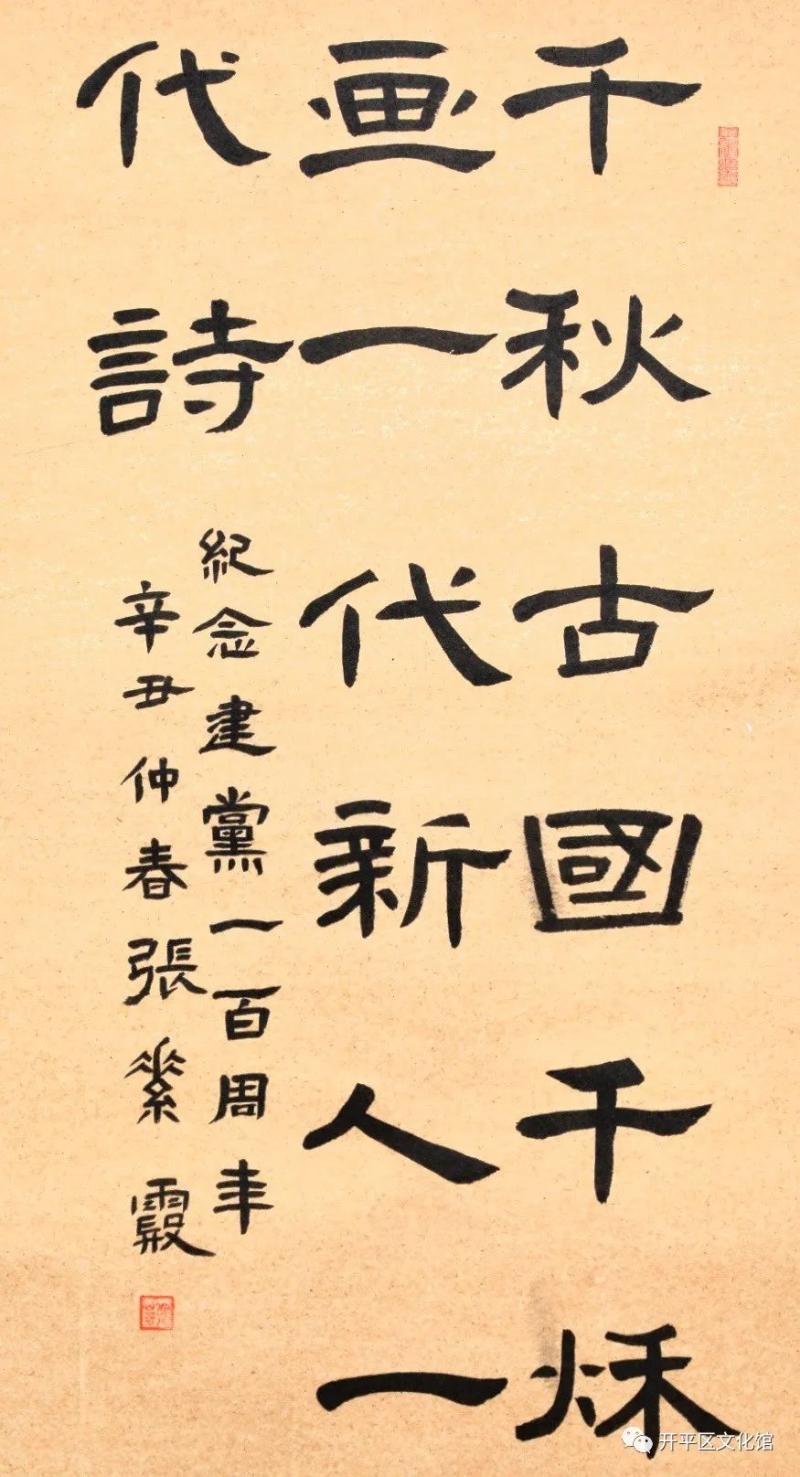 千秋古國千秌
画一代新人一
代詩
紀念建黨一百周年
辛丑仲春張素霞
开平区文化馆